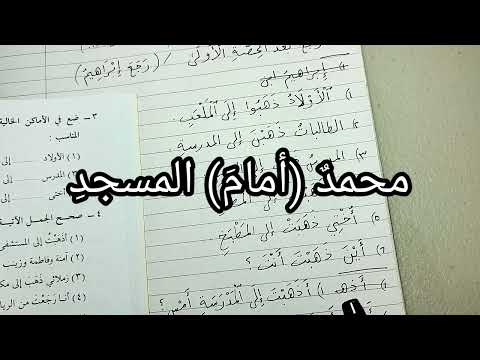 بعد الحِصَّةِ الأُولَى / (رَجَعَ إِبْرَاهِيمُ)
إِبْرَاهِيمُ
١) اَلْأَوْلَادُ ذَهَبُوا إِلَى الْمَلْعَبِ.
الطالباتُ ذَهَبْنَ إِلَى المدرسة.
٣)
محمدٌ (أمامَ) المسجدِ
٥) أُخْتِي ذَهَبَتْ إِلَى المَطْبَخِ.
٦) أَيْنَ ذَهَبْتَ أَنْتَ؟
١) أَذَهَبْتَ إِلَى الْمَدْرَسَةِ أَمْسِ؟
٣ – ضع في الأماكن الخالية
المناسب :
(١) الأولاد ........ إلى
(٢) المدرس ........ إلى
(٣) أختى ........ إلى
٤ – صحح الجمل الآتية
(١) أَذَهَبْتُ إلى المستشفى
(٢) آمنة وفاطمة وزينب
(٣) زملائي ذَهَبَ إلى مكة
(٤) أنا رَجَعْتَ من الرياض